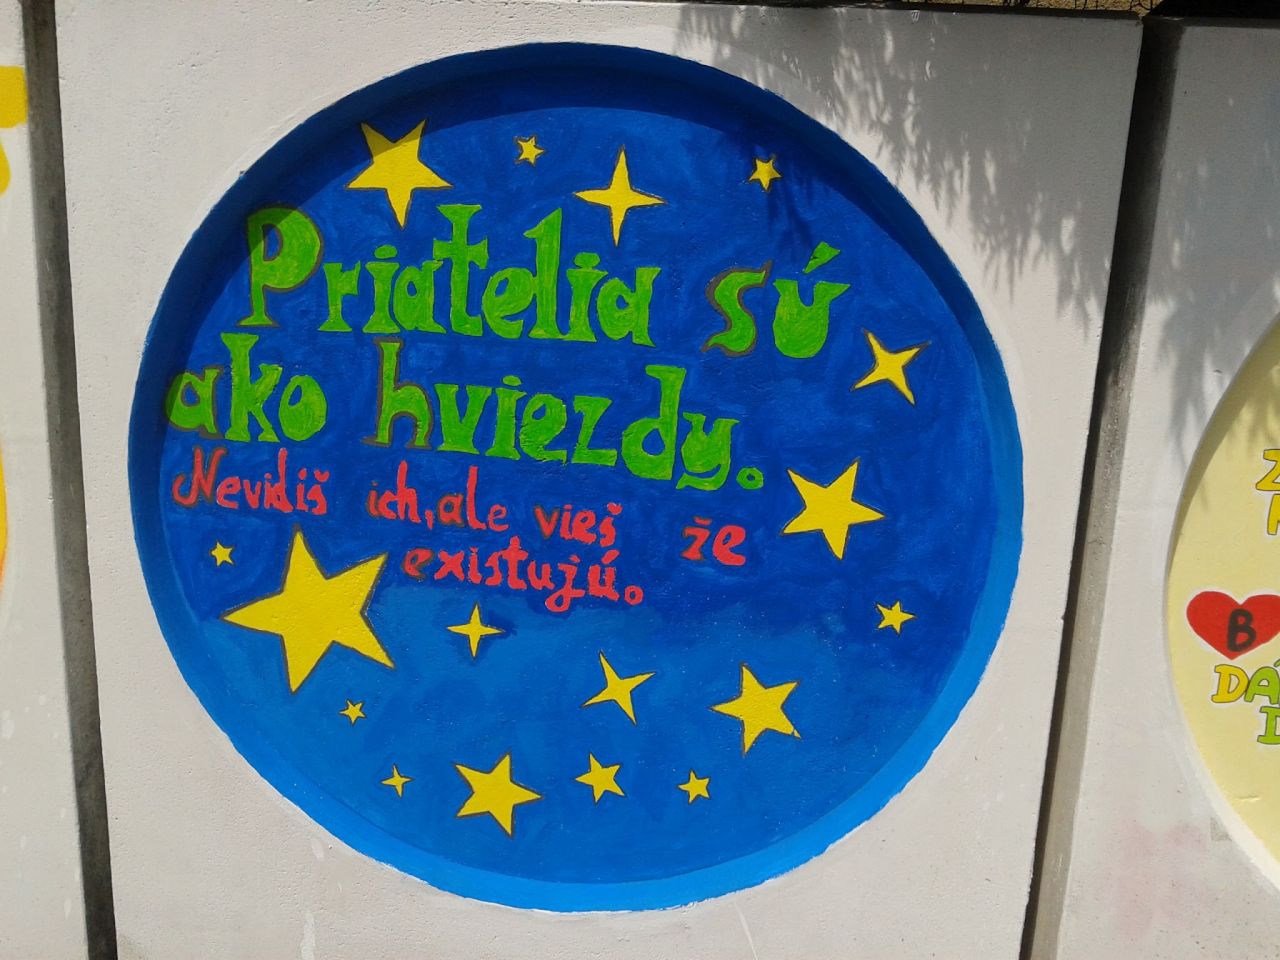 Priatelia sú
ako hviezdy.
Nevidíš ich, ale vieš že
existujú.
B
DÁ